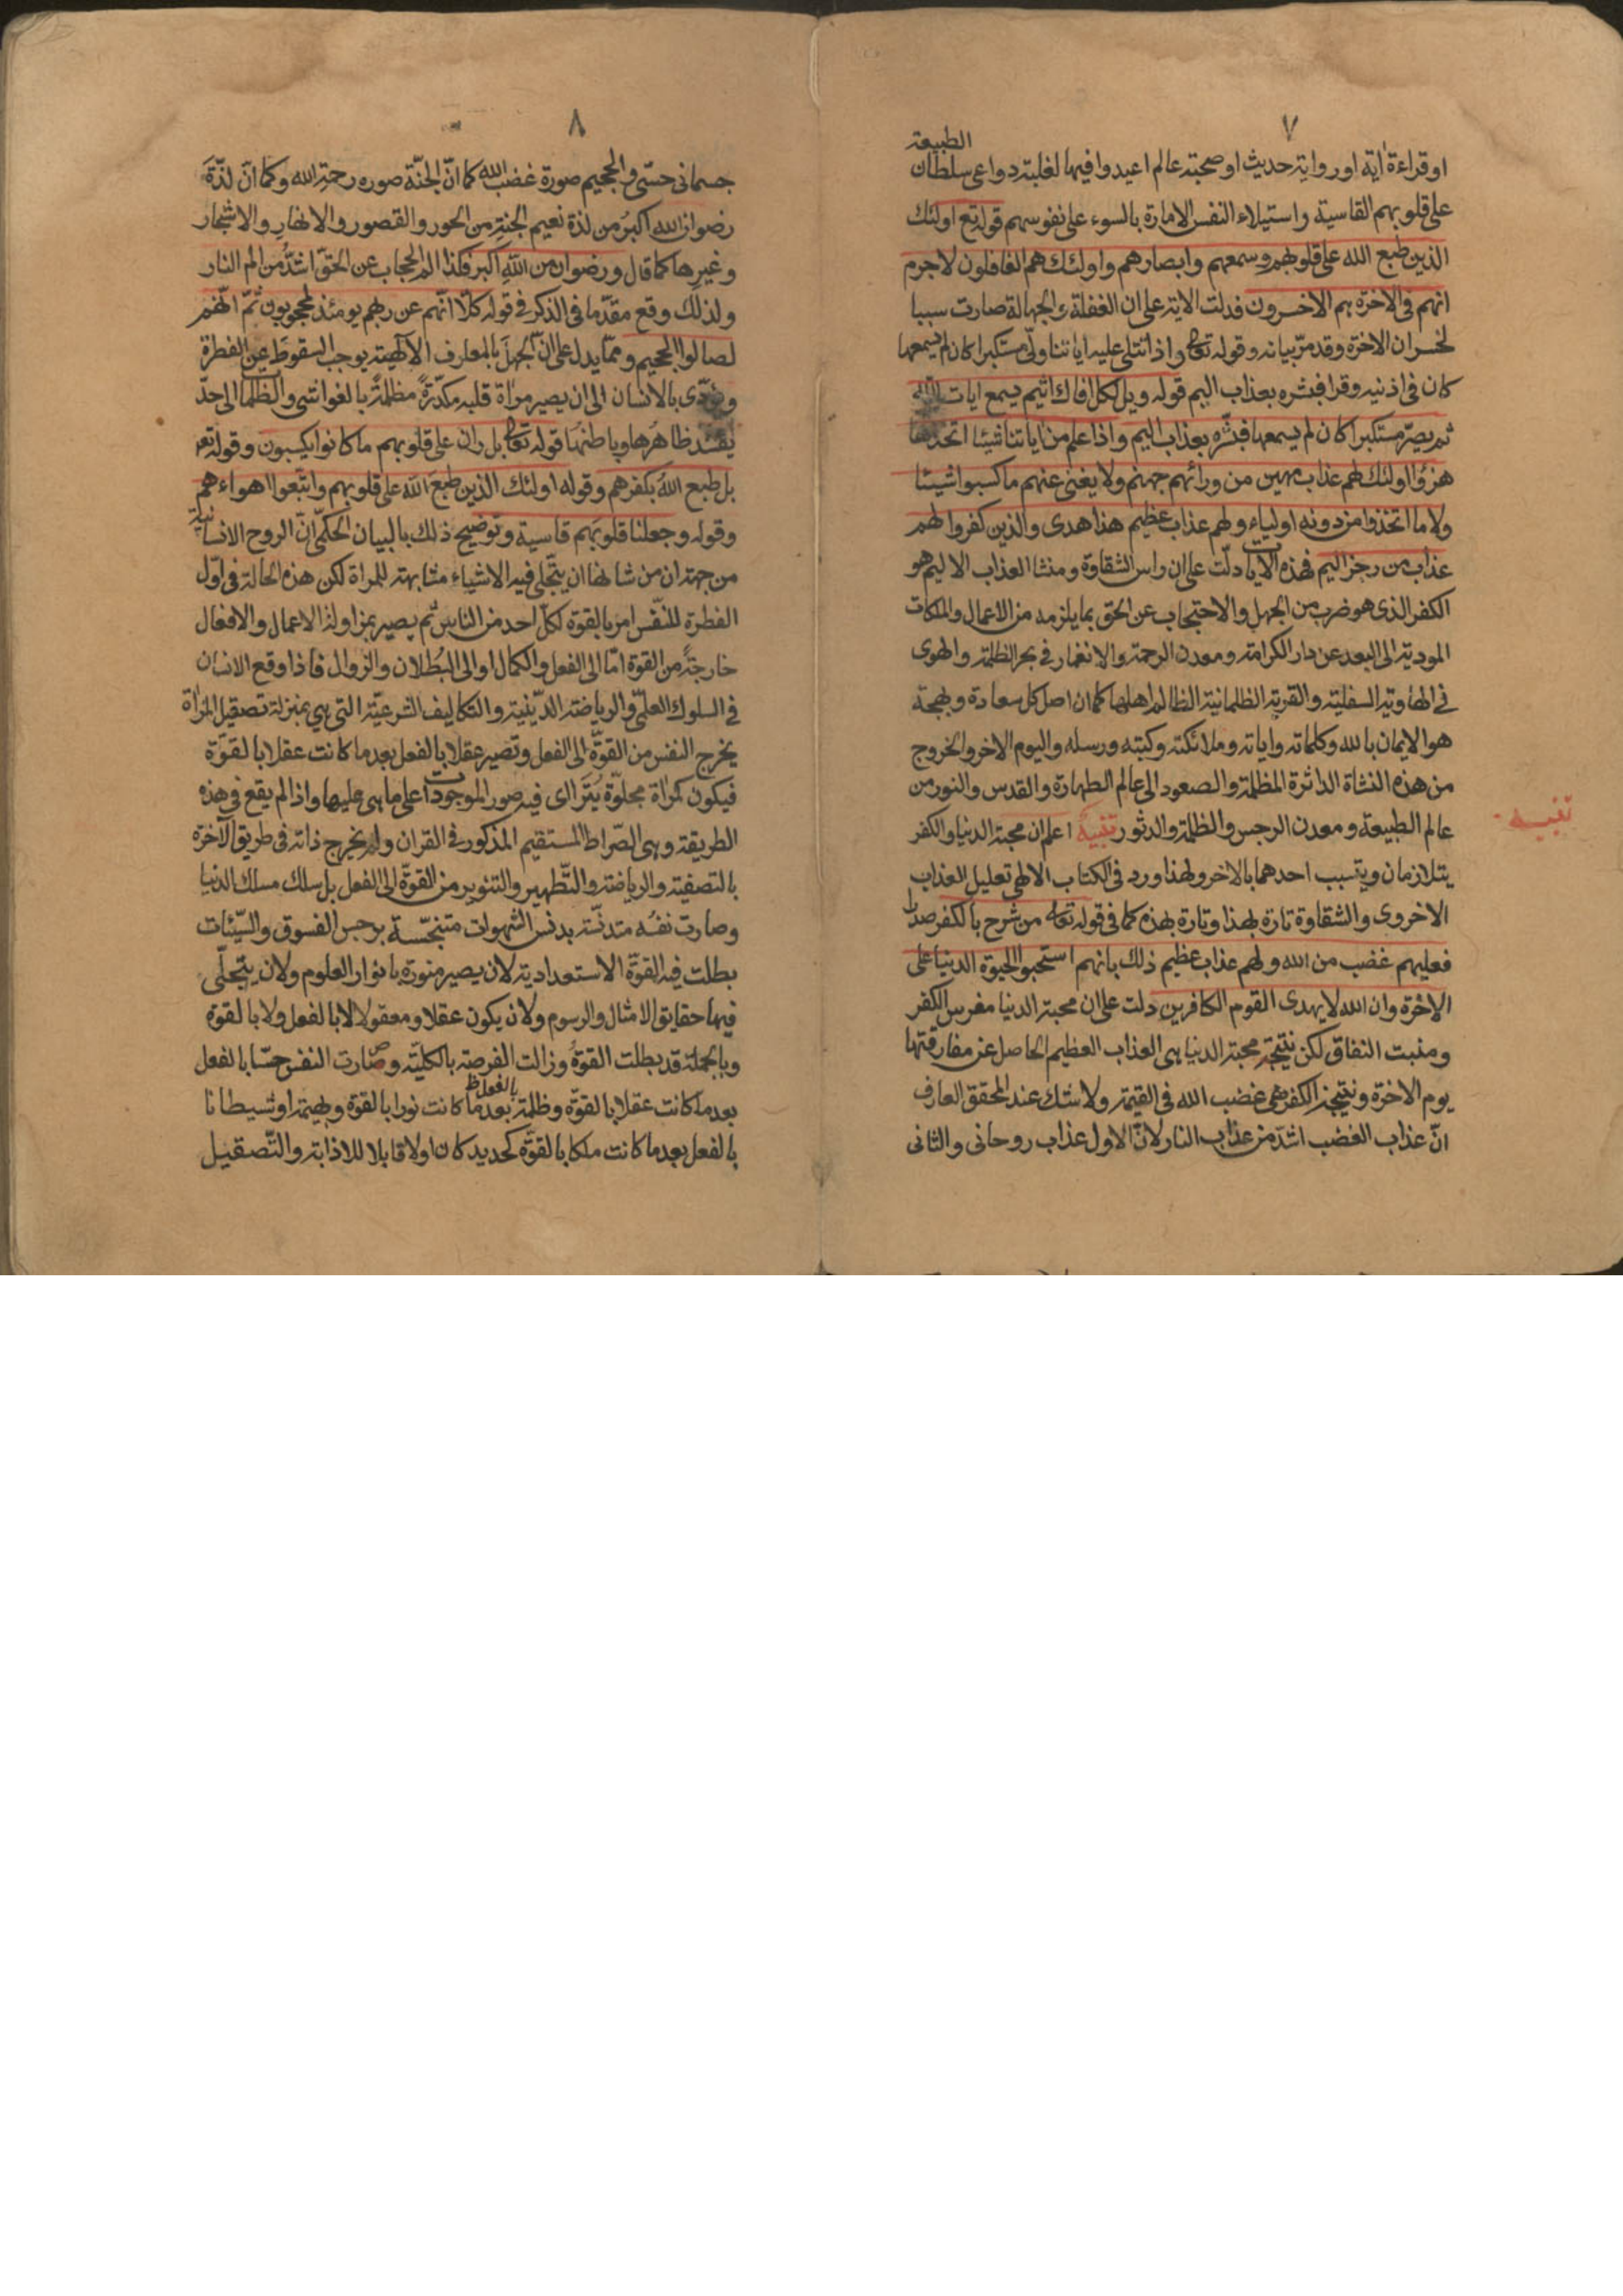 ٧
الطبيعة
او قراءة اية او رواية حديث او صحبة عالم اعيدوا فيها لغلبة دواعى سلطان
على قلوبهم القاسية واستيلاء النفس الامارة بالسوء على نفوسهم قوله تع اولئك
الذين طبع الله على قلوبهم وسمعهم وابصارهم واولئك هم الغافلون لاجرم
انهم فى الاخرة هم الاخسرون فدلت الاية على ان الغفلة و الجهالة صارت سببا
لخسران الاخرة وقد مرّ بيانه وقوله تعالى واذا تتلى عليه اياتنا ولّى مستكبرا كان لم يسمعها
كان فى اذنيه وقرا فبشره بعذاب اليم قوله ويل لكل افاك اثيم يسمع ايات الله
ثم يصرّ مستكبرا كان لم يسمعها فبشّره بعذاب اليم واذا علم من اياتنا شيئا اتخذها
هزؤا اولئك لهم عذاب مهين من ورائهم جهنم ولا يغنى عنهم ما كسبوا شيئا
ولا ما اتخذوا من دونه اولياء ولهم عذاب عظيم هذا هدى والذين كفروا لهم
عذاب من رجز اليم فهذه الايات دلّت على ان راس الشقاوة ومنشا العذاب الاليم هو
الكفر الذى هو ضرب من الجهل والاحتجاب عن الحق بما يلزمه من الاعمال والملكات
المودية الى البعد عن دار الكرامة ومعدن الرحمة والانغمار فى بحر الظلمة والهوى
فى الهاوية السفلية والقرية الظلمانية الظالم اهلها كما ان اصل كل سعادة وبهجة
هو الايمان بالله وكلماته واياته وملائكته وكتبه ورسله واليوم الاخر والخروج
من هذه النشاة الداثرة المظلمة والصعود الى عالم الطهارة والقدس والنور من
عالم الطبيعة ومعدن الرجس والظلمة والدثور تنبيه اعلم ان محبة الدنيا والكفر
تنبيه
يتلازمان ويتسبب احدهما بالاخر ولهذا ورد فى الكتاب الالهى تعليل العذاب
الاخروى والشقاوة تارة بهذا وتارة بهذه كما فى قوله تعالى من شرح بالكفر صدرا
فعليهم غضب من الله ولهم عذاب عظيم ذلك بانهم استحبوا الحيوة الدنيا على
الاخرة وان الله لا يهدى القوم الكافرين دلت على ان محبة الدنيا مغرس الكفر
ومنبت النفاق لكن نتيجة محبة الدنيا هى العذاب العظيم الحاصل عن مفارقتها
يوم الاخرة ونتيجة الكفر هى غضب الله فى القيمة ولا شك عند المحقق العارف
انّ عذاب الغضب اشدّ من عذاب النار لانّ الاول عذاب روحانى والثانى
٨
جسمانى حسّى والجحيم صورة غضب الله كما انّ الجنّة صوره رحمة الله وكما انّ لذّة
رضوان الله اكبر من لذة نعيم الجنة من الحور والقصور والانهار والاشجار
وغيرها كما قال ورضوان من الله اكبر فكذا الم الحجاب عن الحقّ اشدّ من الم النار
ولذلك وقع مقدّما فى الذكر فى قوله كلّا انّهم عن ربهم يومئذ لمحجوبون ثمّ انّهم
لصالوا الجحيم وممّا يدل على انّ الجهل بالمعارف الالهيّة يوجب السقوط عن الفطرة
ويؤدّى بالانسان الى ان يصير مراة قلبه مكدّرة مظلمة بالغواشى والظلما الى حدّ
يفسد ظاهرها وباطنها قوله تعالى بل ران على قلوبهم ما كانوا يكسبون وقوله تعر
بل طبع الله بكفرهم وقوله اولئك الذين طبع الله على قلوبهم واتّبعوا اهواءهم
وقوله وجعلنا قلوبهم قاسية وتوضيح ذلك بالبيان الحكمّى انّ الروح الانسانية
من جهة ان من شانها ان يتجلّى فيه الاشياء مشابهة للمراة لكن هذه الحالة فى اوّل
الفطرة للنفّس امر بالقوة لكلّ احد من الناس ثم يصير بمزاولة الاعمال والافعال
خارجة من القوة امّا الى الفعل والكمال او الى البُطلان والزوال فاذا وقع الانسان
فى السلوك العلمّى والرياضة الدّينية والتكاليف الشرعيّة التى هى بمنزلة تصقيل المراة
يخرج النفس من القوّة الى الفعل وتصير عقلا بالفعل بعد ما كانت عقلا بالقوّة
فيكون كمراة مجلوّة يُتَراآى فيه صور الموجودات على ما هى عليها واذا لم يقع فى هذه
الطريقة وهى الصّراط المستقيم المذكور فى القران ولم يخرج ذاته فى طريق الاخرة
بالتصفية والرياضة والتّطهير والتنوير من القوّة الى الفعل بل سلك مسلك الدنيا
وصارت نفسه متدنّسة بدنس الشهوات متنجّسة برجس الفسوق والسّيّئات
بطلت فيه القوّة الاستعدادية لان يصير منورة بانوار العلوم ولان يتجلّى
فيها حقايق الامثال والرسوم ولان يكون عقلا ومعقولا لا بالفعل ولا بالقوة
وبالجملة قد بطلت القوة وزالت الفرصة بالكليّة وصارت النفس حسّا بالفعل
بعد ما كانت عقلا بالقوّة وظلمة بالفعل ظ بعد ما كانت نورا بالقوة وبهيمة او شيطانا
بالفعل بعد ما كانت ملكا بالقوّة كحديد كان اولا قابلا للاذابة والتّصقيل